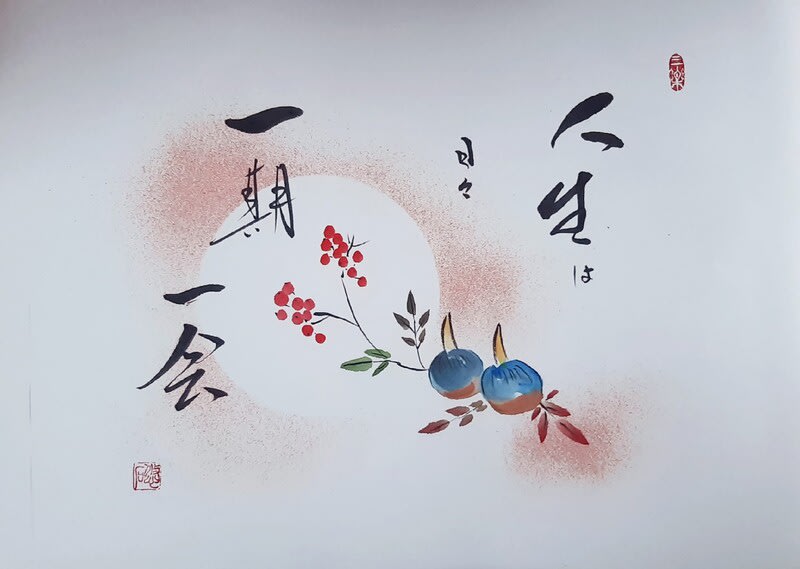 三楽
人生は
日々
一期
一会